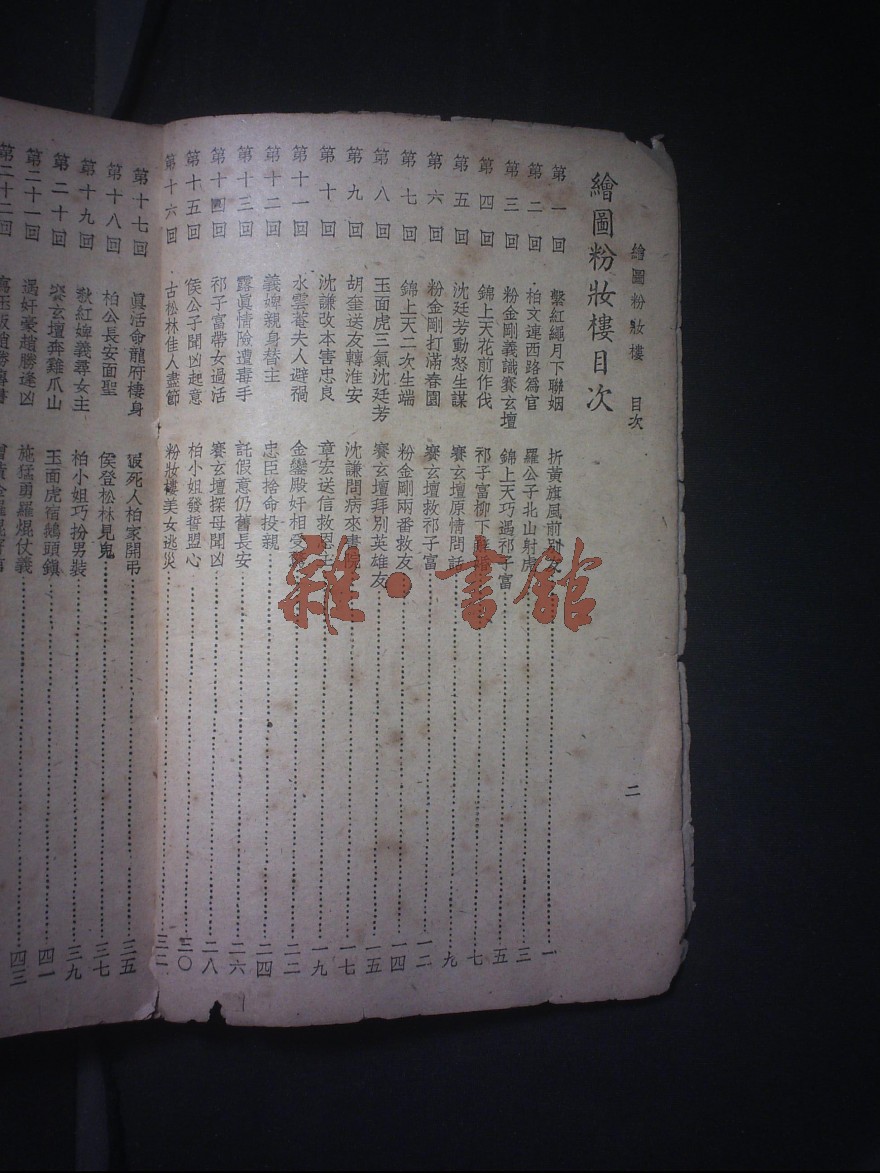 繪圖粉妝樓 目次
二
繪圖粉妝樓目次
第一回 繫紅繩月下聯姻 折黃旗風前別友 一
第二回 柏文連西路爲官 羅公子北山射虎 三
第三回 粉金剛義識賽玄壇 錦上天巧遇祁子富 五
第四回 錦上天花前作伐 祁子富柳下 七
第五回 沈廷芳動怒生謀 賽玄壇原情問話 九
第六回 粉金剛打滿春園 賽玄壇救祁子富 一二
第七回 錦上天二次生端 粉金剛兩番救友 一四
第八回 玉面虎三氣沈廷芳 賽玄壇拜別英雄友 一五
第九回 胡奎送友轉淮安 沈謙問病來書院 一七
第十回 沈謙改本害忠良 章宏送信救恩主 一九
第十一回 水雲菴夫人避禍 金鑾殿奸相受 二二
第十二回 義婢親身替主 忠臣捨命投親 二四
第十三回 露眞情險遭毒手 託假意仍舊長安 二六
第十四回 祁子富帶女過活 賽玄壇探母聞凶 二八
第十五回 侯公子聞凶起意 柏小姐發誓盟心 三〇
第十六回 古松林佳人盡節 粉妝樓美女逃災 三二
第十七回 眞活命龍府棲身 假死人柏家開弔 三五
第十八回 柏公長安面聖 侯登松林見鬼 三七
第十九回 秋紅婢義尋女主 柏小姐巧扮男裝 三九
第二十回 賽玄壇奔雞爪山 玉面虎宿鵝頭鎭 四一
第二十一回 遇奸豪趙勝逢凶 施猛勇羅焜仗義 四三
第二十二回
雜·書館